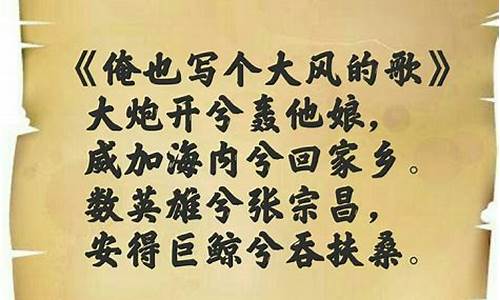 《俺也写个大风的歌》
大炮开兮轰他娘，
威加海内兮回家乡。
数英雄兮张宗昌，
安得巨鲸兮吞扶桑。